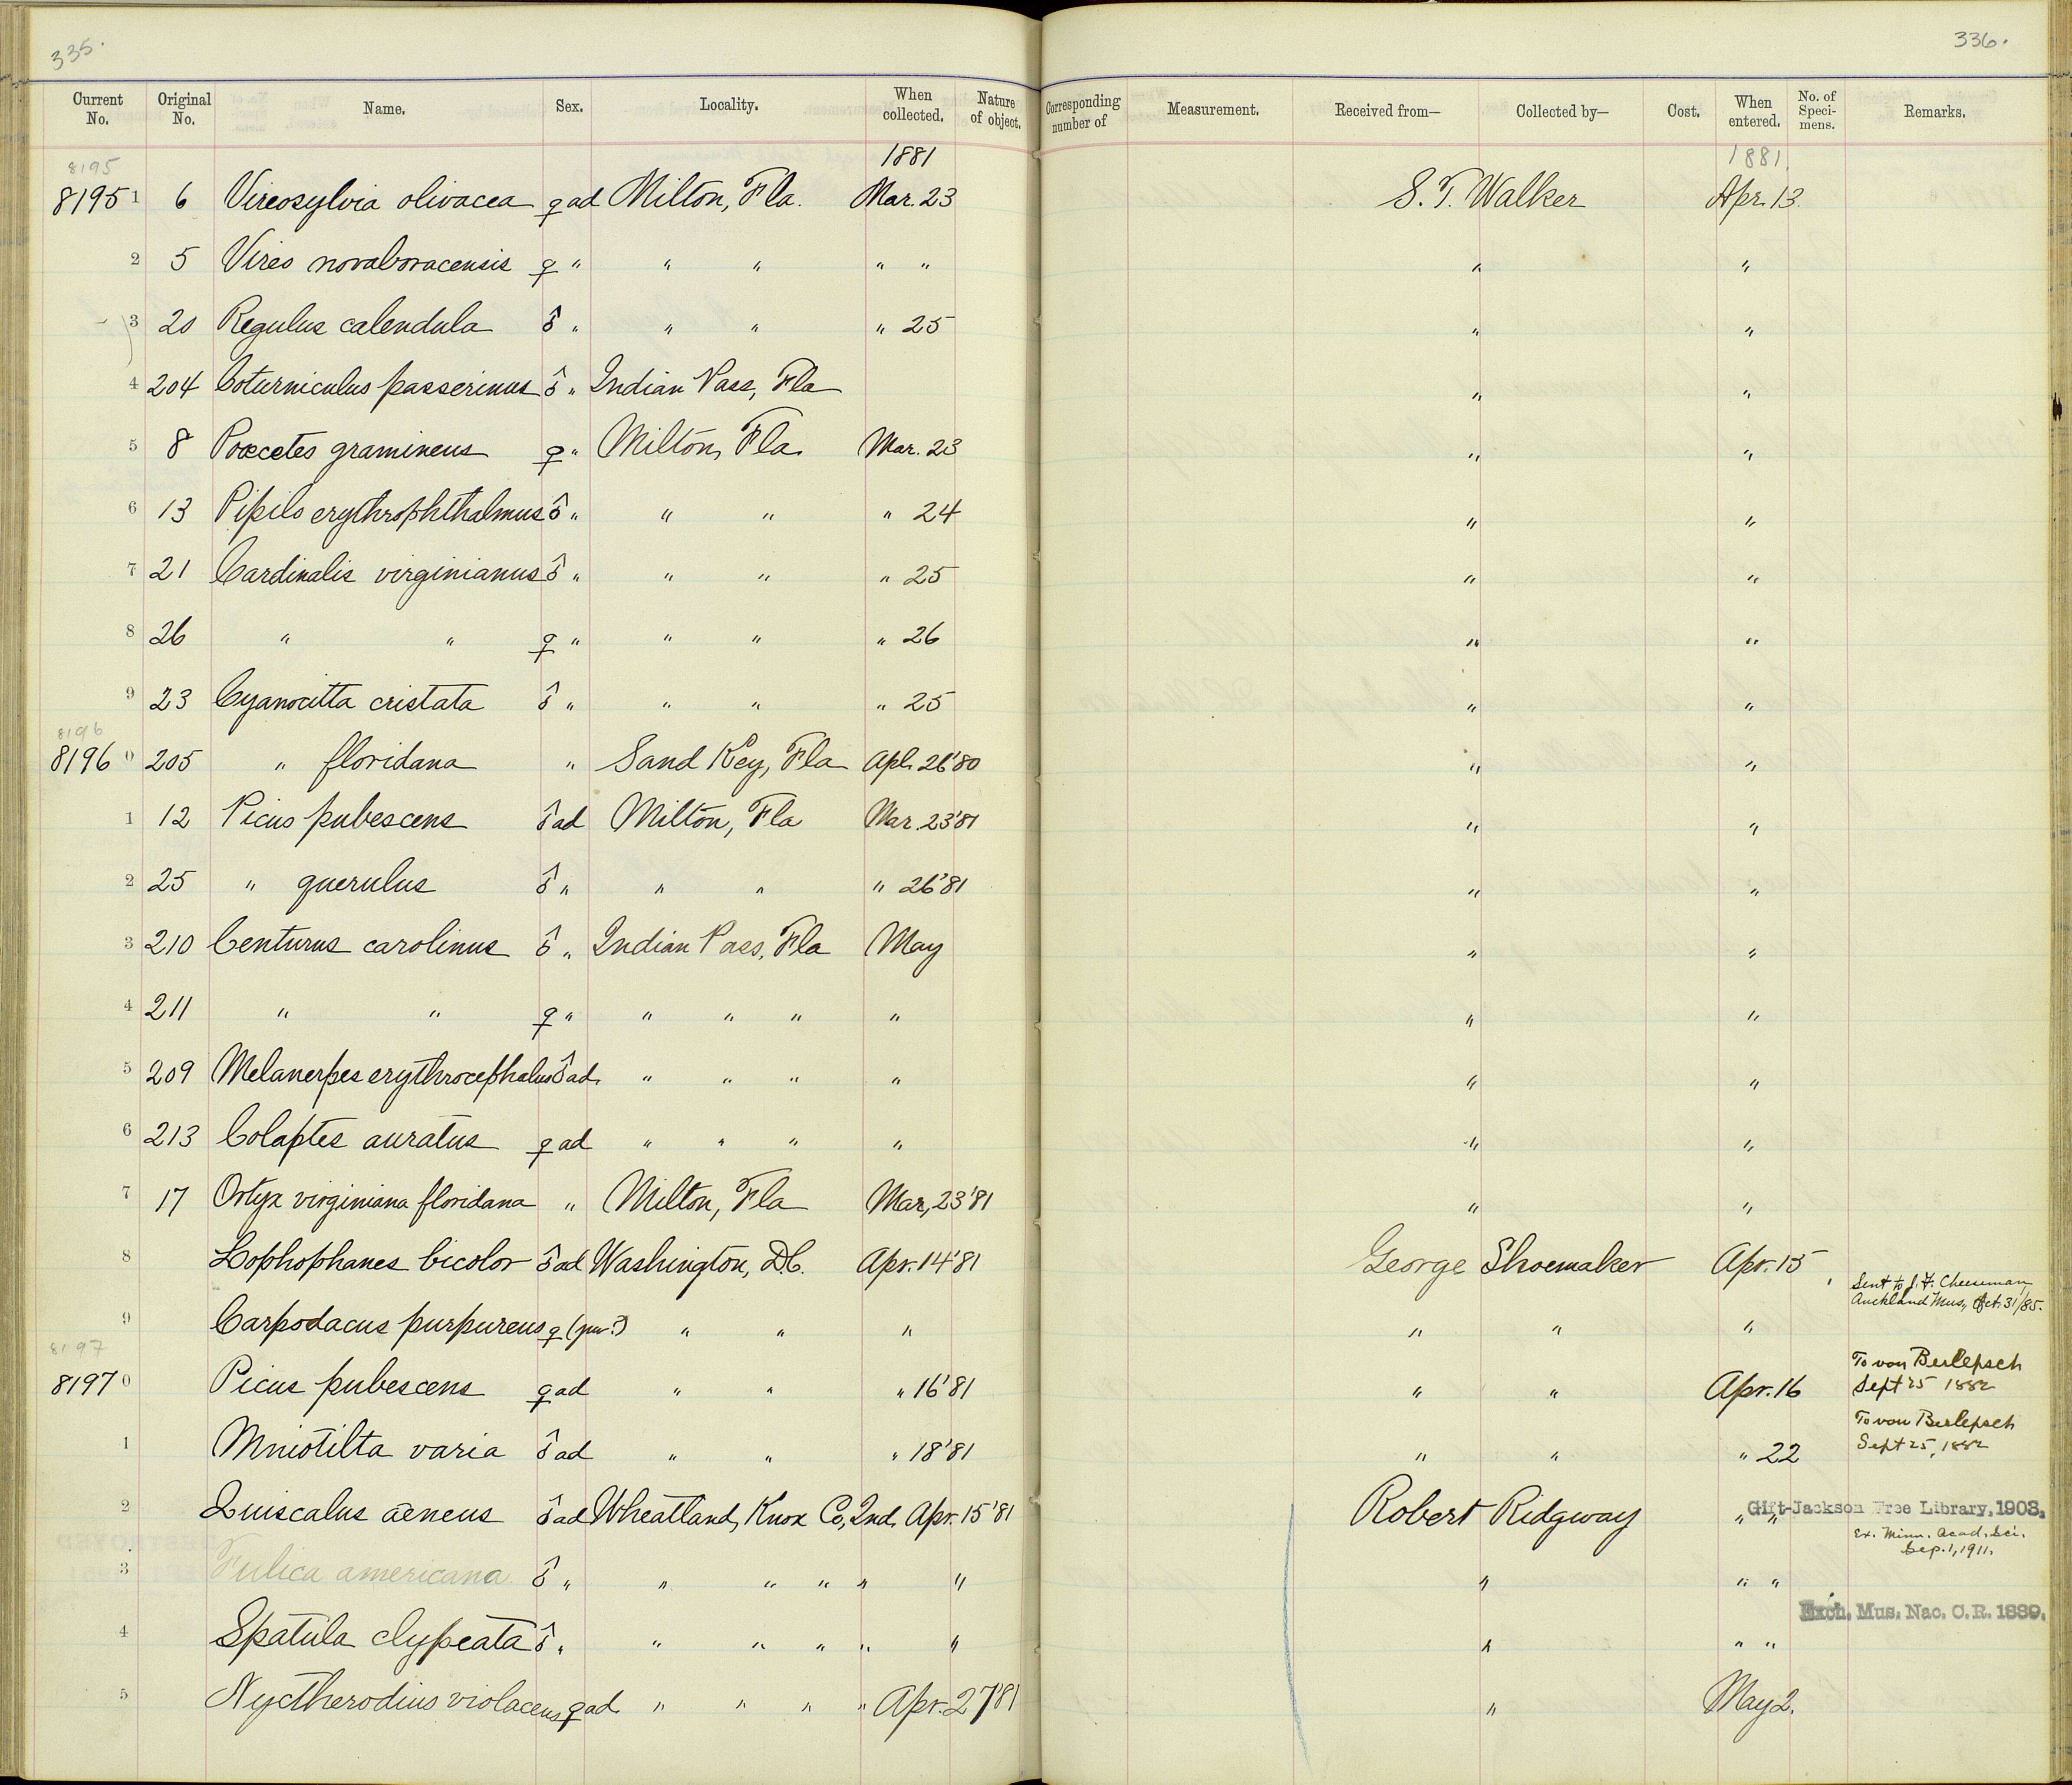 335.
336.
Current No. Original No. Name. Sex. Locality. When collected. Nature of object. Corresponding number of Measurement. Received from— Collected by— Cost. When entered. No. of Speci-mens. Remarks.
8195 1881 1881
8195 1 6 Vireosylvia olivacea ♀ ad Milton, Fla. Mar. 23 S. T. Walker Apr. 13
2 5 Vireo novaboracensis ♀ " " " " " " "
3 20 Regulus calendula ♂ " " " " 25 " "
4 204 Coturniculus passerinus ♂ " Indian Pass, Fla " "
5 8 Poœcetes gramineus ♀ " Milton, Fla. Mar. 23 " "
6 13 Pipilo erythrophthalmus ♂ " " " " 24 " "
7 21 Cardinalis virginianus ♂ " " " " 25 " "
8 26 " " ♀ " " " " 26 " "
9 23 Cyanocitta cristata ♂ " " " " 25 " "
8196
8196 0 205 " floridana " Sand Key, Fla Apl. 26'80 " "
1 12 Picus pubescens ♂ ad Milton, Fla Mar. 23'81 " "
2 25 " querulus ♂ " " " " 26'81 " "
3 210 Centurus carolinus ♂ " Indian Pass, Fla May " "
4 211 " " ♀ " " " " " " "
5 209 Melanerpes erythrocephalus ♂ ad. " " " " " "
6 213 Colaptes auratus ♀ ad " " " " " "
7 17 Ortyx virginiana floridana " Milton, Fla Mar, 23'81 " "
8 Lophophanes bicolor ♂ ad Washington, D.C. Apr. 14'81 George Shoemaker Apr. 15
Sent to J. F. Cheeseman
Auckland Mus, Oct. 31/85.
9 Carpodacus purpureus ♀ (juv.?) " " " " " "
8197
8197 0 Picus pubescens ♀ ad " " " 16'81 " " Apr. 16 To von Berlepsch
Sept 25 1882
1 Mniotilta varia ♂ ad " " " 18'81 " " " 22 To von Berlepsch
Sept 25, 1882
2 Quiscalus æneus ♂ ad Wheatland, Knox Co, Ind. Apr. 15'81 Robert Ridgway " " Gift-Jackson Free Library, 1903.
Ex. Minn. Acad. Sci.
Sep. 1, 1911.
3 Fulica americana ♂ " " " " " " " " "
Exch. Mus. Nac. C. R. 1889.
4 Spatula clypeata ♂ " " " " " " " " "
5 Nyctherodius violaceus ♀ ad. " " " " Apr. 27'81 " May 2.